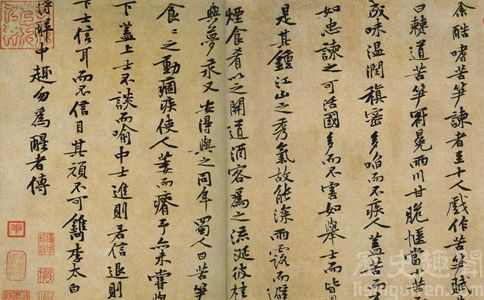 余酷嗜苦笋諫者至十人戲作苦笋賦
曰僰道苦笋冠冕兩川甘脆愜當小苦
成味温潤縝密多啗而不疾人蓋苦
如忠諫之可活國多而不害如舉士而皆
是其鍾江山之秀氣故能深雨露而避
煙食肴以之開道酒客為之流涎彼桂
與夢永又安得與之同年蜀人曰苦笋
食〻之動痼疾使人萎而瘠予亦未嘗
下蓋上士不談而喻中士進則若信退則
下士信耳而不信目其頑不可鐫李太白
得醉中趣勿為醒者傳
历史趣闻